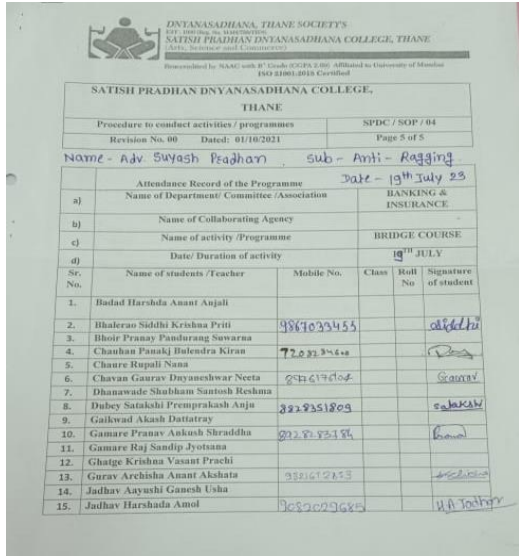 DNYANASADHANA, THANE SOCIETY'S
SATISH PRADHAN DNYANASADHANA COLLEGE, THANE
(Arts, Science and Commerce)
Affiliated to University of Mumbai
ISO 21001:2018 Certified
SATISH PRADHAN DNYANASADHANA COLLEGE,
THANE
Procedure to conduct activities / programmes SPDC / SOP / 04
Revision No. 00 Dated: 01/10/2021 Page 5 of 5
Name - Adv. Suyash Pradhan Sub - Anti - Ragging
Attendance Record of the Programme Date - 19th July 23
a) Name of Department/ Committee /Association BANKING & INSURANCE
b) Name of Collaborating Agency
c) Name of activity /Programme BRIDGE COURSE
d) Date/ Duration of activity 19TH JULY
Sr. No. Name of students /Teacher Mobile No. Class Roll No Signature of student
1. Badad Harshda Anant Anjali
2. Bhalerao Siddhi Krishna Priti 9867033455 Siddhi
3. Bhoir Pranay Pandurang Suwarna
4. Chauhan Panakj Bulendra Kiran
5. Chaure Rupali Nana
6. Chavan Gaurav Dnyaneshwar Neeta Gaurav
7. Dhanawade Shubham Santosh Reshma
8. Dubey Satakshi Premprakash Anju 8828351809 Satakshi
9. Gaikwad Akash Dattatray
10. Gamare Pranav Ankush Shraddha
11. Gamare Raj Sandip Jyotsana
12. Ghatge Krishna Vasant Prachi
13. Gurav Archisha Anant Akshata
14. Jadhav Aayushi Ganesh Usha
15. Jadhav Harshada Amol 9082029685 H A Jadhav